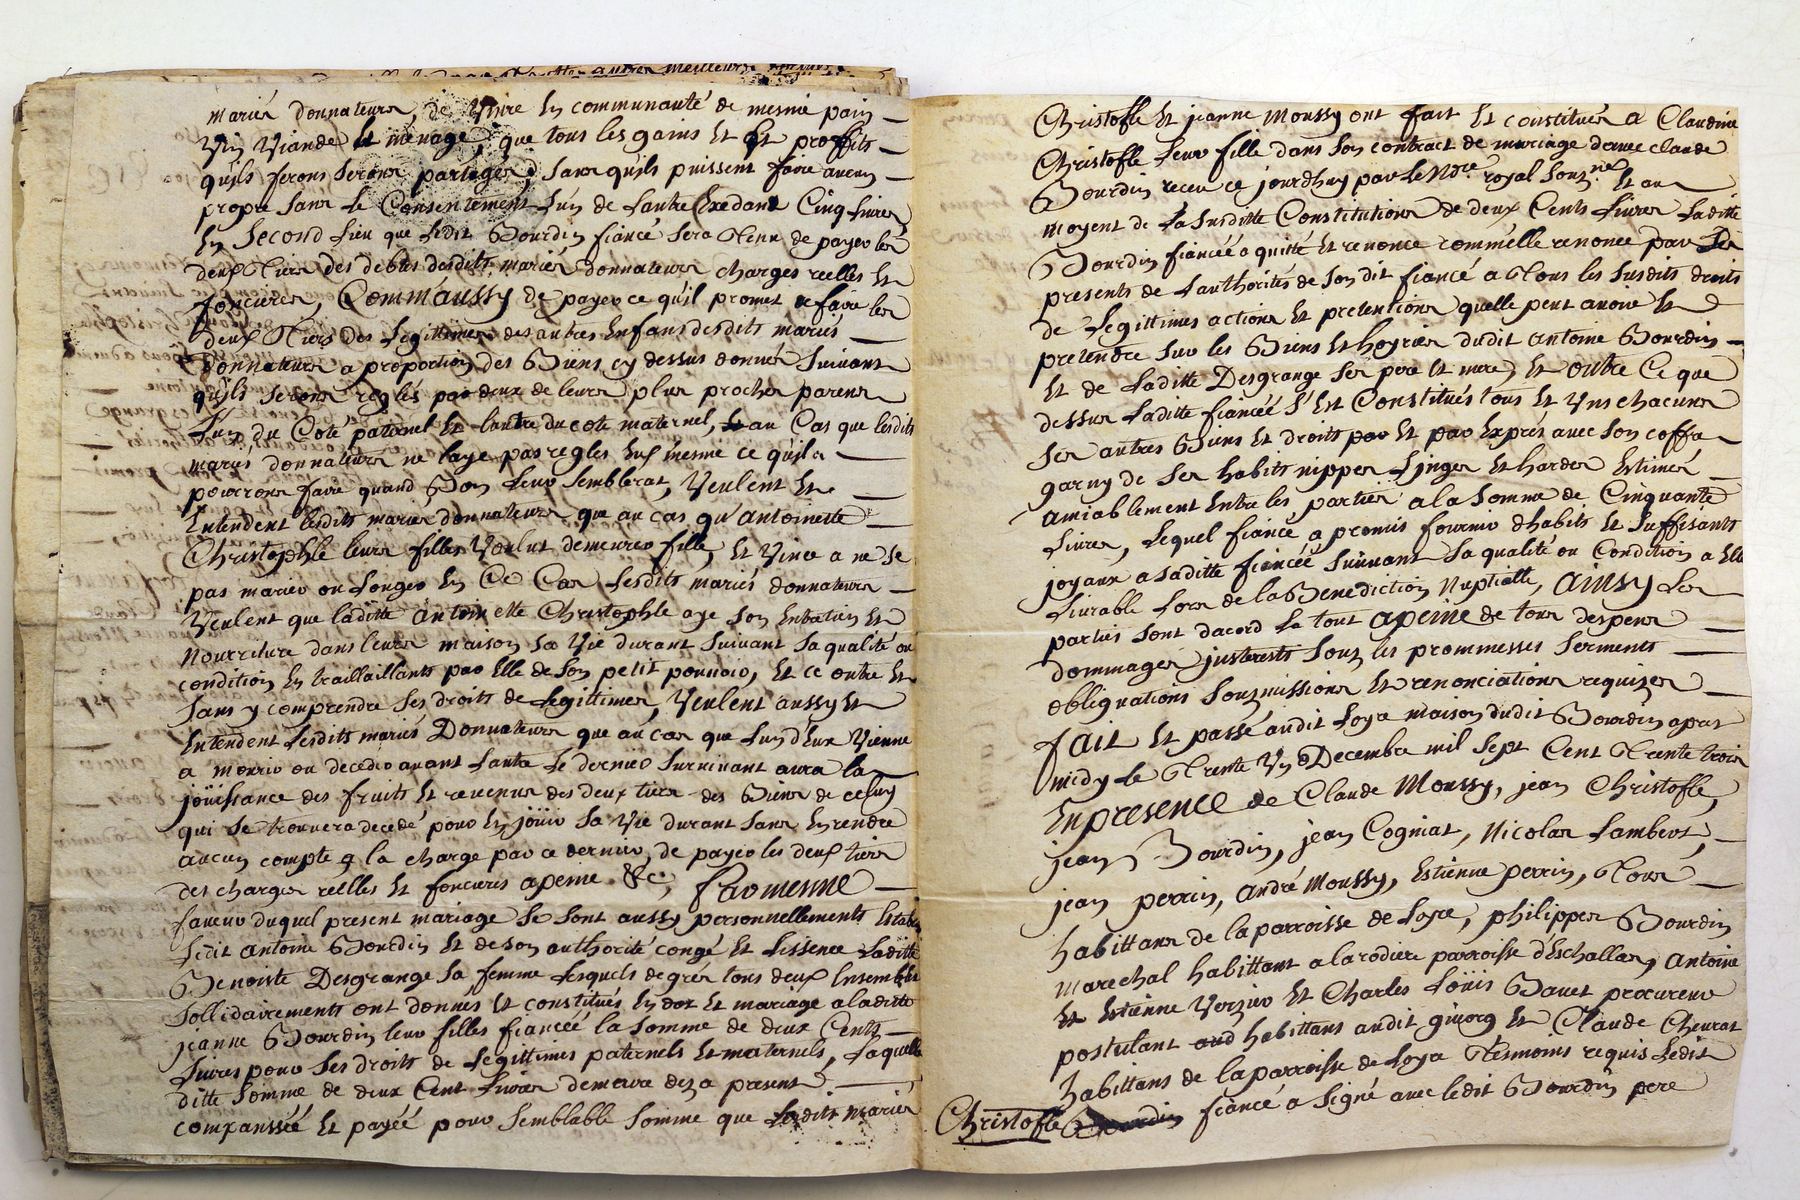 mariés donnateurs, de Vivre En communauté de mesme pain
Vin Viande Et ménage, que tous les gains Et proffits
qu'ils ferons serons partagés, sans qu'ils puissent faire aucun
propre sans le Consentement l'un de lautre Exedant Cinq livres
En Second lieu que ledit Bourdin fiancé sera tenu de payer les
deux tiers des debtes desdits mariés donnateurs charges reelles Et
foncieres, Comm'aussy de payer ce qu'il promet de faire les
deux tiers des legittimes des autres Enfans desdits mariés
donnateurs a proportion des Biens cy dessus donnés suivant
qu'ils serons reglés par deux de leurs plus proches parens
l'un du Coté paternel Et lautre du cote maternel, Et au Cas que lesdits
mariés donnateurs ne laye pas regles Eux mesme ce qu'ils
pourrons faire quand Bon leur semblerat, Veulent Et
Entendent lesdits mariés donnateurs que au cas qu'antoinette
Christophle leurs filles Voulut demeurer fille, Et Vince a ne se
pas marier ou longer En Ce Cas lesdits mariés donnateurs
Veulent que laditte antoinette Christophle aye son Entretien Et
nourriture dans leurs maison sa Vie durant suivant sa qualité ou
condition En traillaillants par Elle de son petit pouvoir, Et ce outre Et
sans y comprendre ses droits de legittimes, Veulent aussy Et
Entendent lesdits mariés Donnateurs que au cas que l'un d'Eux Vienne
a mourir ou deceder avant lautre le dernier survivant aura la
joüissance des fruits Et revenus des deux tiers des Biens de celuy
qui se trouvera decedé pour En joüir sa Vie durant sans En rendre
aucun compte a la charge par ce dernier, de payer les deux tiers
des charges reelles Et foncieres apeine &c, Et a mesme
faveur duquel present mariage se sont aussy personnellements Estably
ledit antoine Bourdin Et de son authorité congé Et lissence laditte
Benoiste Desgrange sa femme lesquels de grés tous deux Ensembles
sollidairements ont donnés Et constitués En dot Et mariage a laditte
jeanne Bourdin leur filles fiancéé la somme de deux Cents
livres pour ses droits de legittimes paternels Et maternels, laquelle
ditte somme de deux Cent livres demeure dez a present
companssée Et payéé pour semblable somme que lesdits mariés
Christofle Et jeanne Moussy ont fait Et constitués a Claudine
Christofle leur fille dans son contract de mariage davec claude
Bourdin receu ce jourdhuy par le Ndre royal souzné Et au
moyent de la susditte Constitutions de deux Cents livres laditte
Bourdin fiancéé a quitté Et renonce comm'elle renonce par Les
presents de l'authorités de son dit fiancé a tous les susdits droits
de legittimes actions Et pretentions quelle peut avoir Et
pretendre sur les Biens Et hoyries dudit antoine Bourdin
Et de laditte Desgrange ses pere Et mere, Et outre Ce que
dessus laditte fiancéé s'Est Constitués tous Et Vns chacuns
ses autres Biens Et droits par Et par Exprés avec son coffre
garny de ses habits nippes linges Et hardes Estimés
amiablement Entre les parties a la somme de Cinquante
livres, lequel fiancé a promis fournir dhabits Et suffisants
joyaux a saditte fiancéé suivant sa qualité ou Condition a Elle
livrable lors de la Benediction Nuptialle, Ainsy les
parties sont dacord le tout apeine de tous despens
dommages justerests souz les prommesses serments
oblignations souzmissions Et renonciations requizes
fait Et passé audit loya maison dudit Bourdin apres
midy le trente Vn Decembre mil sept Cent trente trois
En presence de Claude Moussy, jean Christofle,
jean Bourdin, jean Cogniat, Nicolas Lambert,
jean perrin, andré Moussy, Estienne perrin, tous
habittans de la parroisse de loye, philippes Bourdin
marechal habittant a la rodiere parroisse d'Eschallas, antoine
Et Estienne Verzier Et Charles loüis Bauet procureur
postulant habittans audit givorg Et Claude Cheurat
habittans de la parroisse de loya tesmoins requis ledit
Christofle fiancé a signé avec ledit Bourdin pere